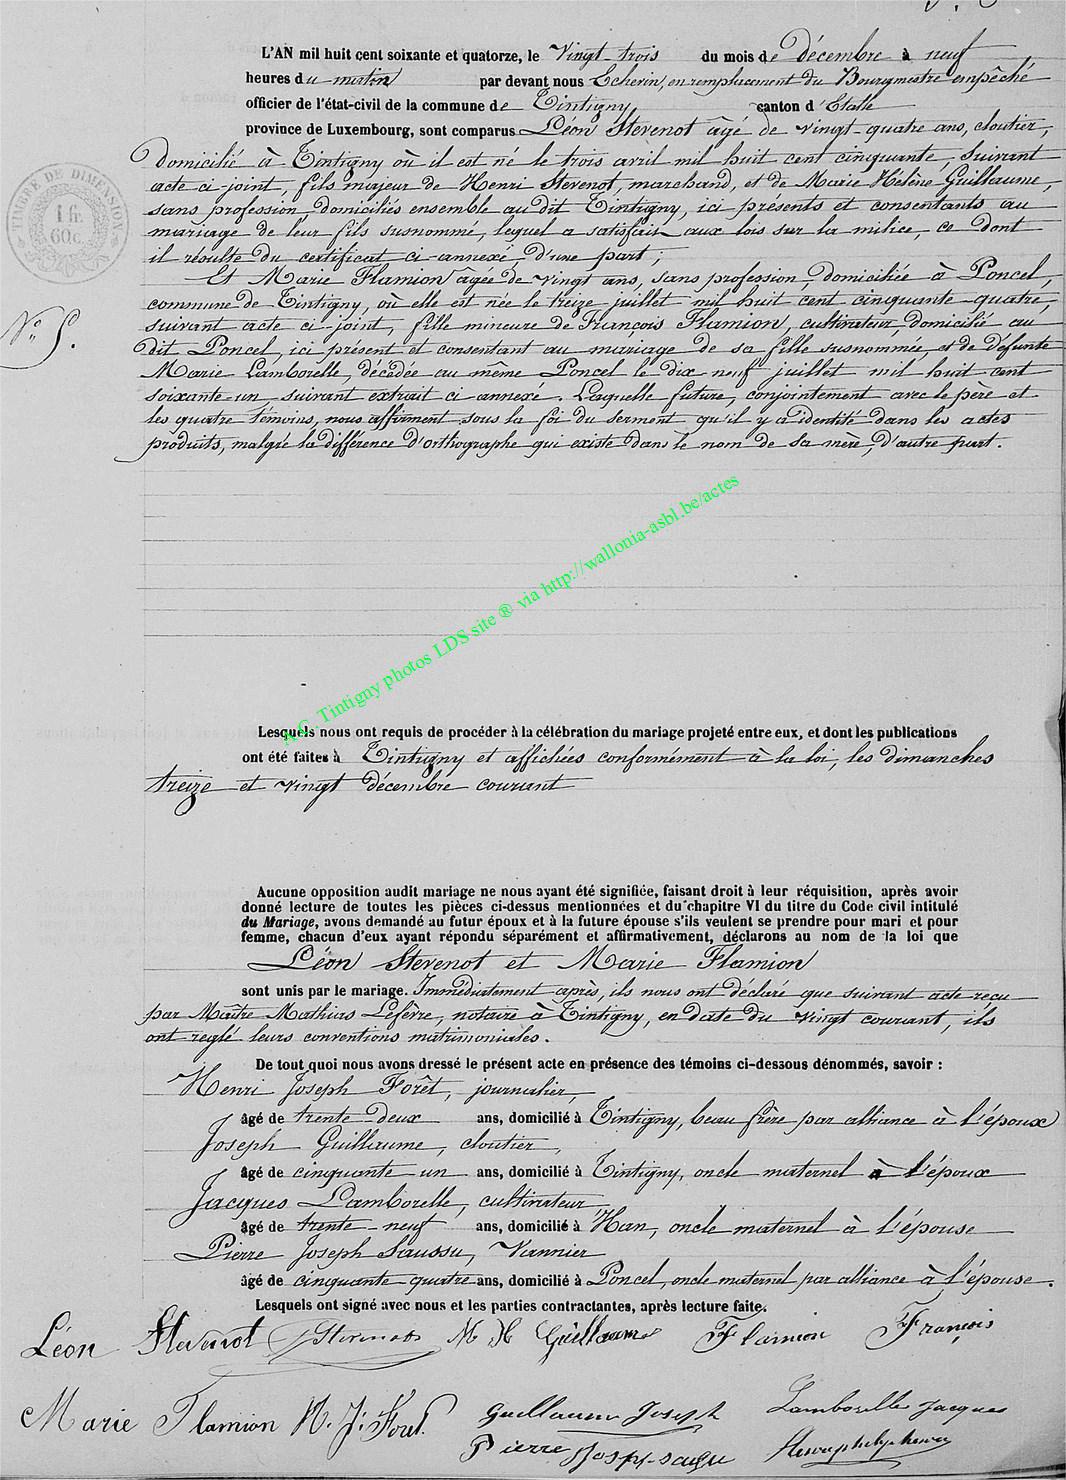 L'AN mil huit cent soixante et quatorze, le Vingt-trois du mois de décembre à neuf
heures du matin par devant nous Echevin, en remplacement du Bourgmestre empêché
officier de l'état-civil de la commune de Tintigny canton d'Etalle
province de Luxembourg, sont comparus Léon Stevenot âgé de vingt-quatre ans, cloutier,
domicilié à Tintigny où il est né le trois avril mil huit cent cinquante, suivant
acte ci-joint, fils majeur de Henri Stevenot, marchand, et de Marie Hélène Guillaume,
sans profession, domiciliés ensemble au dit Tintigny, ici présents et consentants au
mariage de leur fils susnommé, lequel a satisfait aux lois sur la milice, ce dont
il résulte du certificat ci-annexé, d'une part;
Et Marie Flamion âgée de vingt ans, sans profession, domiciliée à Poncel,
commune de Tintigny, où elle est née le treize juillet mil huit cent cinquante-quatre,
suivant acte ci-joint, fille mineure de François Flamion, cultivateur, domicilié au
dit Poncel, ici présent et consentant au mariage de sa fille susnommée, et de défunte
Marie Lamborelle, décédée au même Poncel le dix neuf juillet mil huit cent
soixante-un suivant extrait ci annexé. Laquelle future, conjointement avec le père et
les quatre témoins, nous affirment sous la foi du serment qu'il y a identité dans les actes
produits, malgré la différence d'orthographe qui existe dans le nom de sa mère, d'autre part.
TIMBRE DE DIMENSION
1 fr.
60 c.
No 5.
A.C. Tintigny photos LDS site ® via http://wallonia-asbl.be/actes
Lesquels nous ont requis de procéder à la célébration du mariage projeté entre eux, et dont les publications
ont été faites à Tintigny et affichées conformément à la loi, les dimanches
treize et vingt décembre courant
Aucune opposition audit mariage ne nous ayant été signifiée, faisant droit à leur réquisition, après avoir
donné lecture de toutes les pièces ci-dessus mentionnées et du chapitre VI du titre du Code civil intitulé
du Mariage, avons demandé au futur époux et à la future épouse s'ils veulent se prendre pour mari et pour
femme, chacun d'eux ayant répondu séparément et affirmativement, déclarons au nom de la loi que
Léon Stevenot et Marie Flamion
sont unis par le mariage. Immédiatement après, ils nous ont déclaré que suivant acte reçu
par Maître Mathias Lefèvre, notaire à Tintigny, en date du vingt courant, ils
ont reglé leurs conventions matrimoniales.
De tout quoi nous avons dressé le présent acte en présence des témoins ci-dessous dénommés, savoir :
Henri Joseph Forêt, journalier,
âgé de trente deux ans, domicilié à Tintigny, beau frère par alliance à l'époux
Joseph Guillaume, cloutier,
âgé de cinquante un ans, domicilié à Tintigny, oncle maternel à l'époux
Jacques Lamborelle, cultivateur
âgé de trente-neuf ans, domicilié à Han, oncle maternel à l'épouse
Pierre Joseph Saussu, Vannier
âgé de cinquante quatre ans, domicilié à Poncel, oncle maternel par alliance à l'épouse.
Lesquels ont signé avec nous et les parties contractantes, après lecture faite.
Léon Stevenot Stevenot M H Guillaume Flamion François
Marie Flamion H. J. Foret Guillaume Joseph Lamborelle Jacques
Pierre Joseph